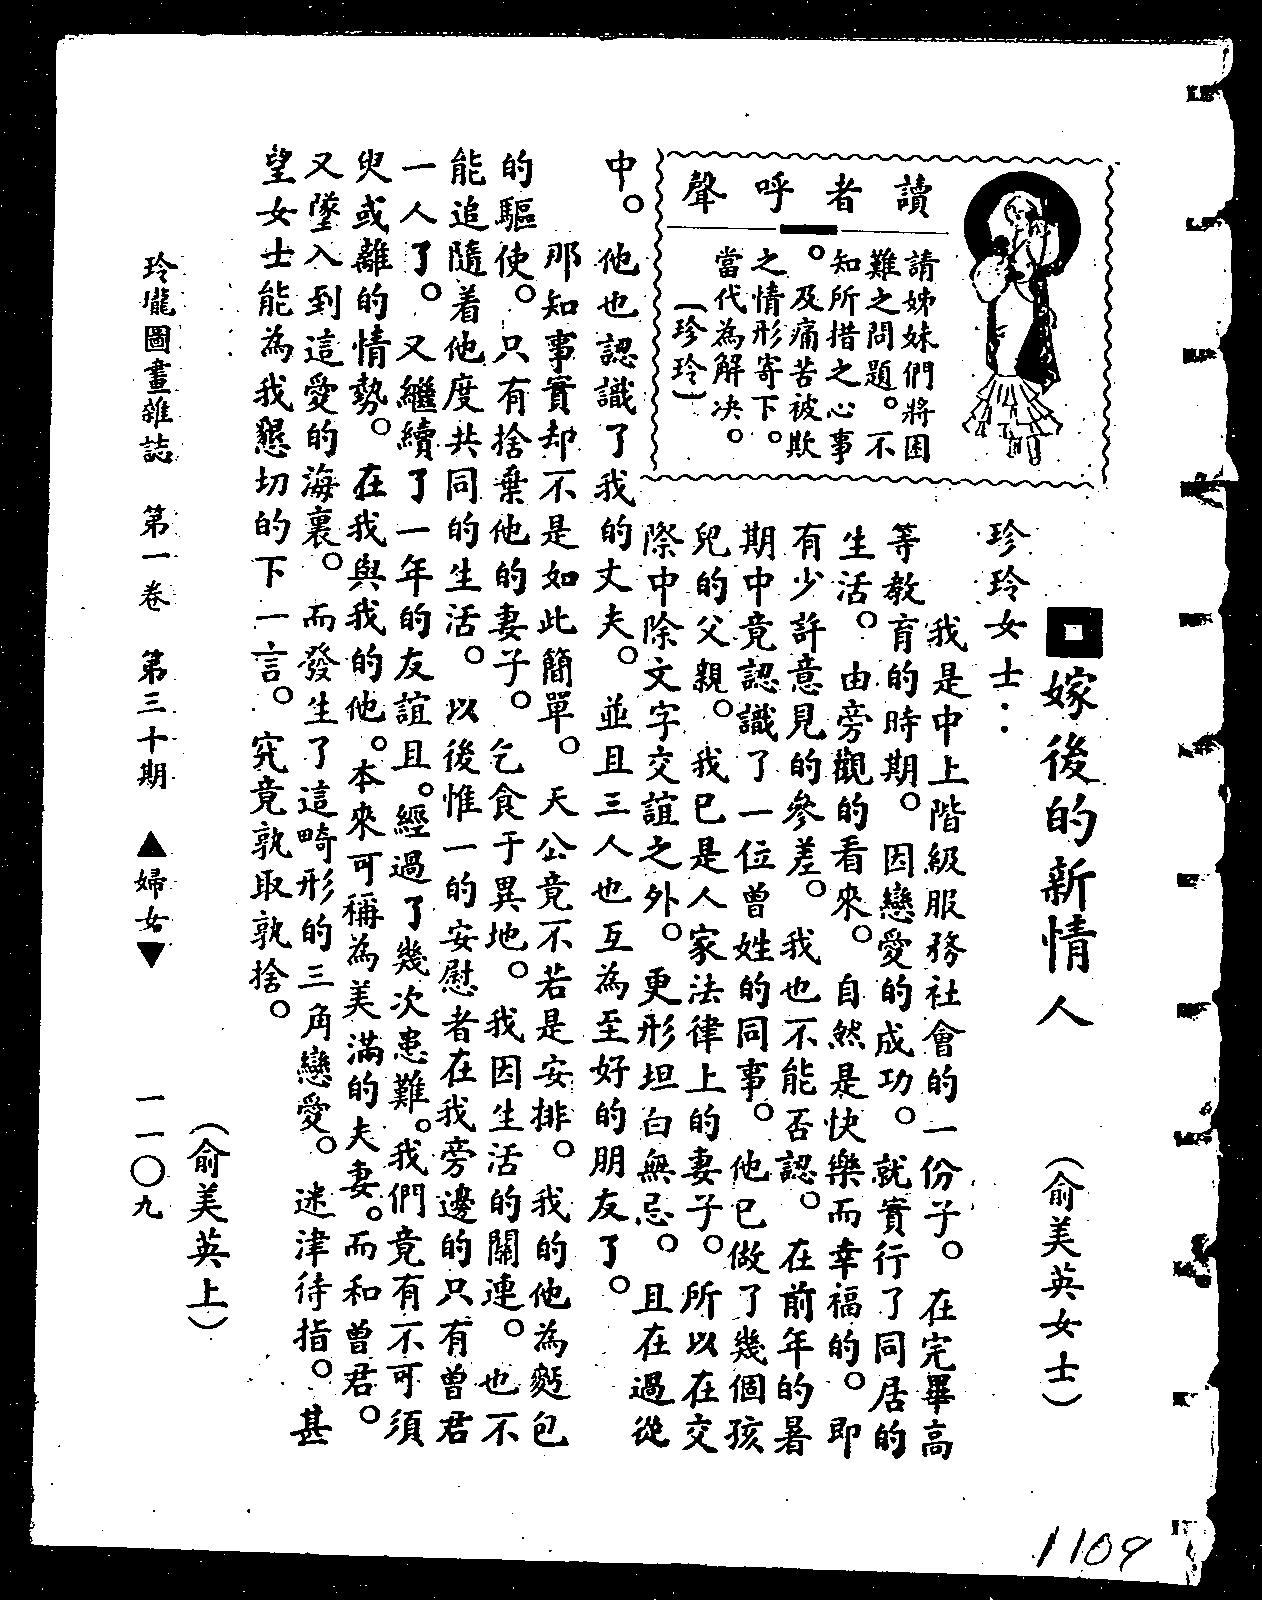 讀者呼聲
請姊妹們將困
難之問題。不
知所措之心事
。及痛苦被欺
之情形寄下。
當代為解决。
(珍玲)
嫁後的新情人 (俞美英女士)
珍玲女士：
我是中上階級服務社會的一份子。在完畢高
等教育的時期。因戀愛的成功。就實行了同居的
生活。由旁觀的看來。自然是快樂而幸福的。即
有少許意見的參差。我也不能否認。在前年的暑
期中竟認識了一位曾姓的同事。他已做了幾個孩
兒的父親。我已是人家法律上的妻子。所以在交
際中除文字交誼之外。更形坦白無忌。且在過從
中。他也認識了我的丈夫。並且三人也互為至好的朋友了。
那知事實却不是如此簡單。天公竟不若是安排。我的他為麵包
的驅使。只有捨棄他的妻子。乞食于異地。我因生活的關連。也不
能追隨着他度共同的生活。以後惟一的安慰者在我旁邊的只有曾君
一人了。又繼續了一年的友誼且。經過了幾次患難。我們竟有不可須
臾或離的情勢。在我與我的他。本來可稱為美滿的夫妻。而和曾君。
又墜入到這愛的海裏。而發生了這畸形的三角戀愛。迷津待指。甚
望女士能為我懇切的下一言。究竟孰取孰捨。
(俞美英上)
玲瓏圖畫雜誌 第一卷 第三十期 ▲婦女▼ 一一〇九
1109